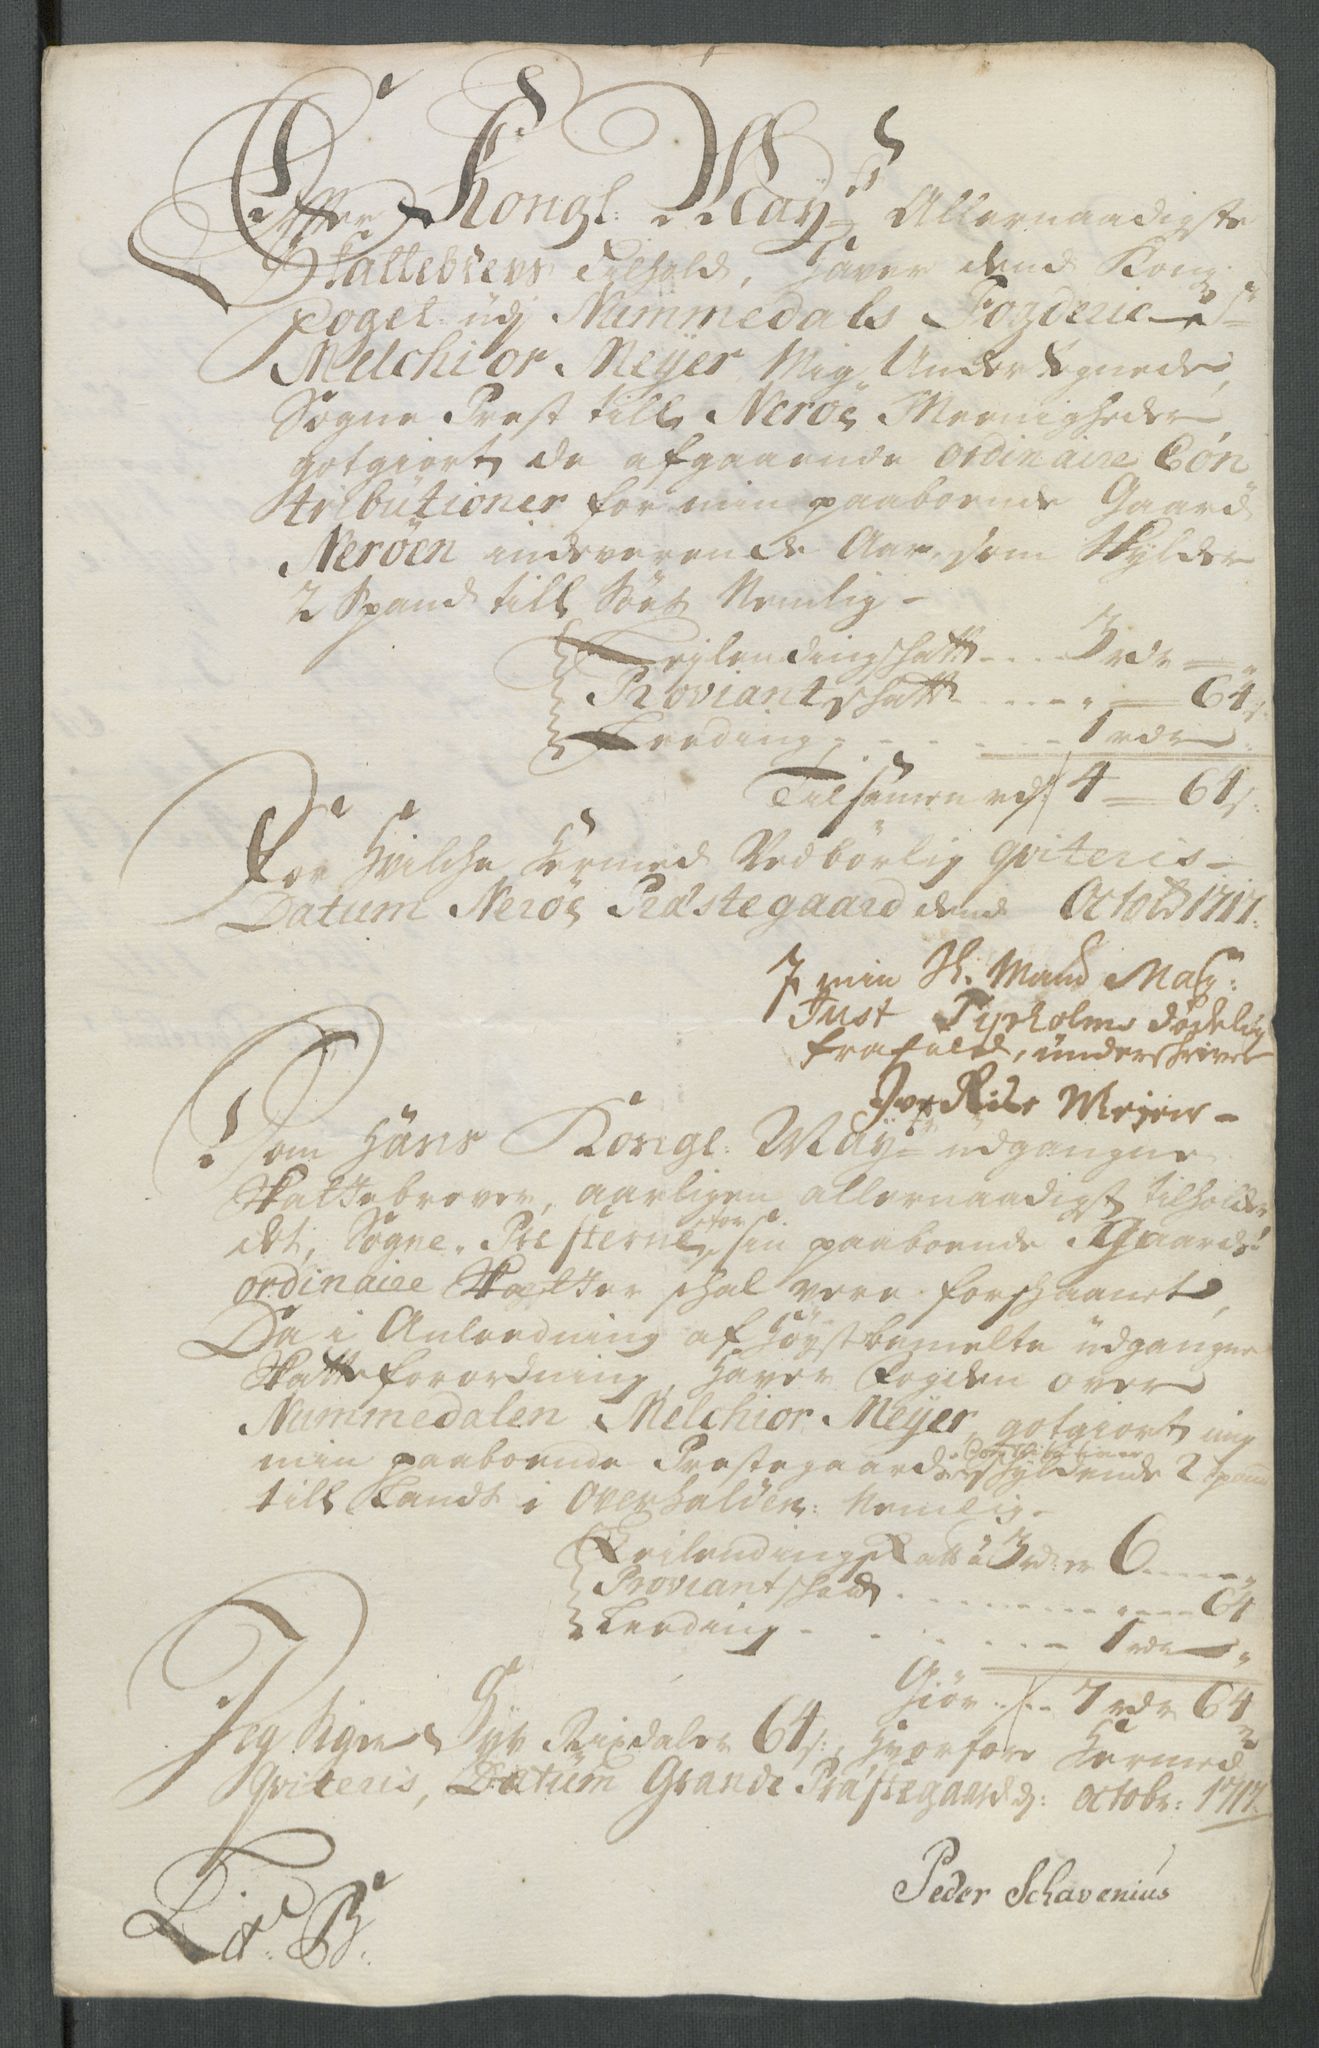 Effter Kongl: Mayts Allernaadigste
Skattebrevs Tilhold, haver dend Kong:
Foget udj Nummedals Fogderie Sr
Melchior Meyer Mig Undertegnede,
Sogne Prest till Nerøe Menigheder,
gotgiort de afgaaende ordinaire Con
tributioner for min paaboende Gaard
Nerøen indeverende Aar, som Skylder
2 Spand till Søes Nemlig –
Lejlendingschatt - - - 3 rdr — "
Proviantschatt - - - - - " — 64 s:
Leeding - - - - - - 1 rdr
Tilsamen rdr 4 — 64 s:
For Hvilche hermed Vedbørlig qviteris –
Datum Nerøe Præstegaard dend Octobr 1717:
J min Sl. Mand Mag:
Just Pyeholms dødelig
frafald, underskriver
Rise Meyer –
Som Hans Kongl: Mayts udgangne
Skattebrever, aarligen allernaadigst tilholder
det, Sogne-Presterne for sin paaboende Gaards
ordinaire Skatter schal vere forschaanet,
Da i Anleedning af høystbemelte udgangne
Skatteforordning, haver Fogden over
Nummedalen Melchior Meyer, gotgiort mig
min paaboende Prestegaards Contributioner skyldende 2 spand
till Landt i Overhalden: Nemlig –
Leilendingschatt a 3 rdr er 6 - - - - "
Proviantschatt - - - - - - - - - " - - - 64
Leeding - - - - - - - 1 rdr — "
Giør - - 7 rdr 64
Jeg siger Syv Rixdaler 64 s:, hvorfore hermed
qviteris, Datum Grande Præstegaard d: octobr: 1717.
Peder Schavenius
Litr: B: